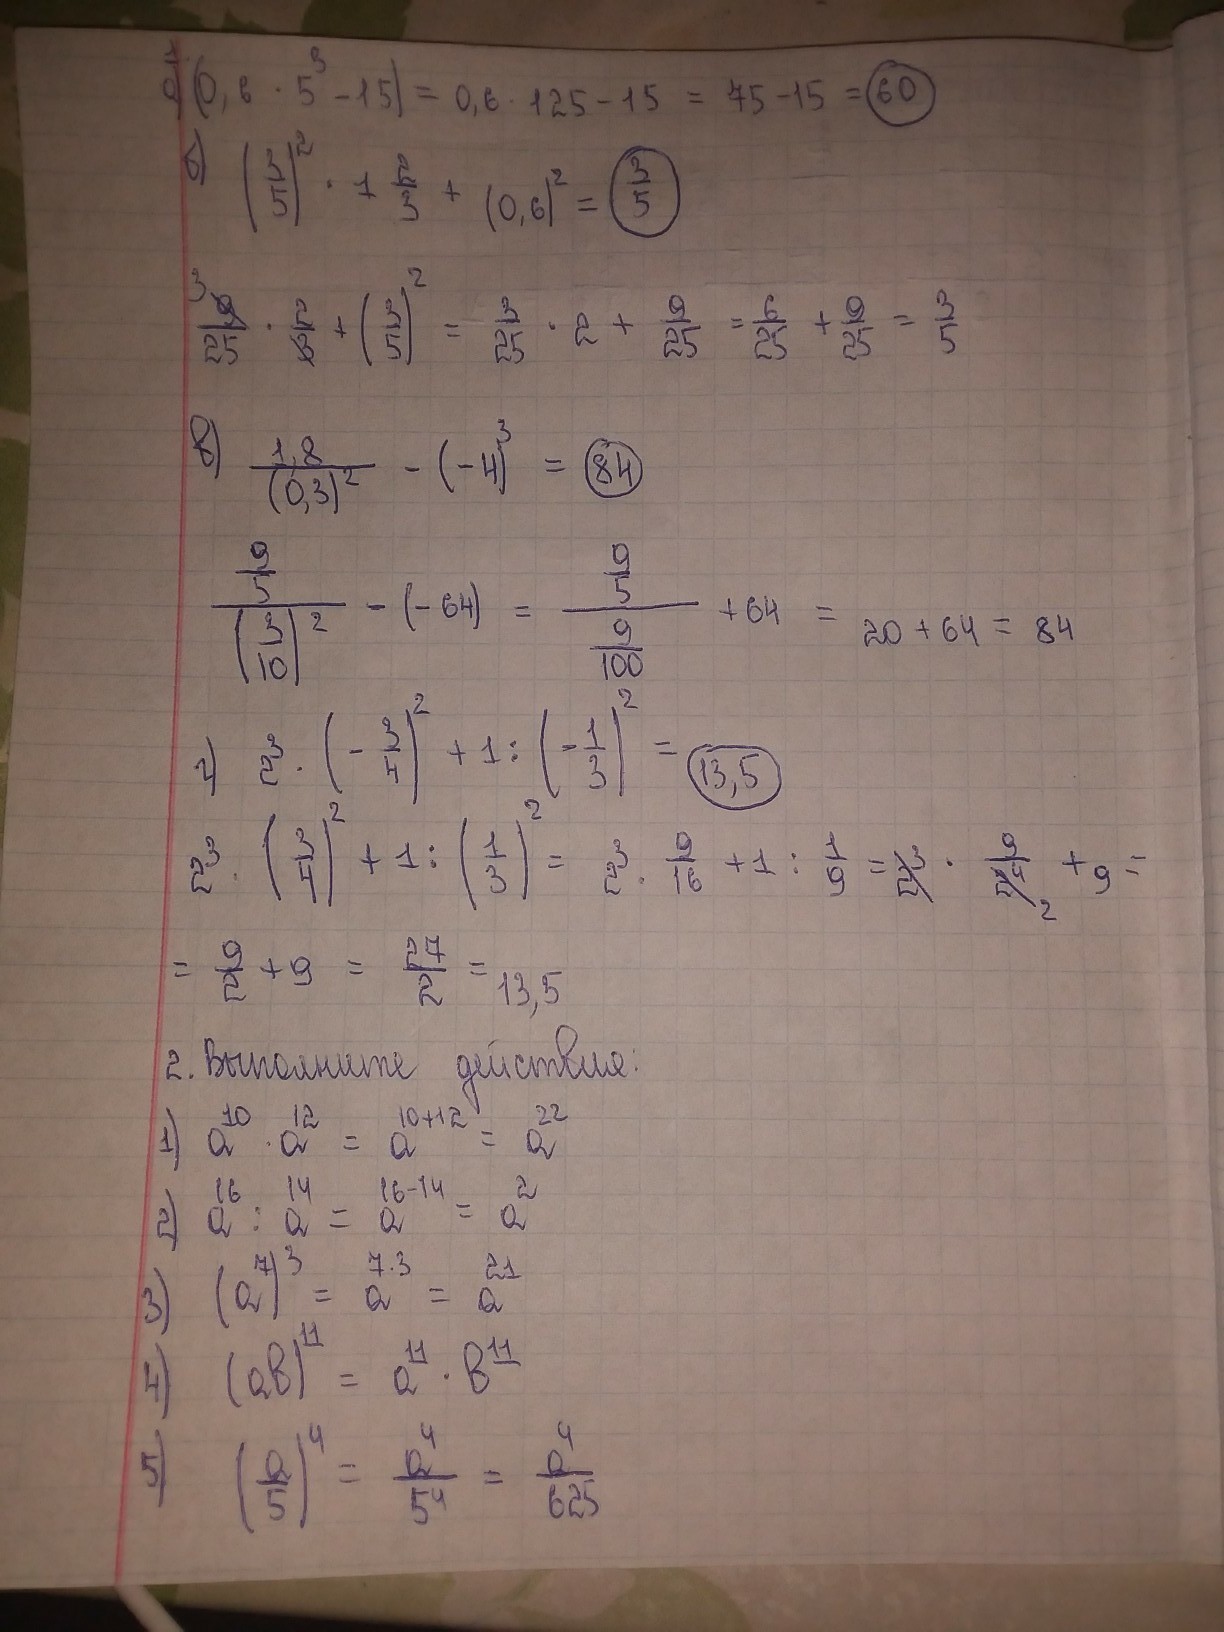 1.
а) (0,6 · 5³ - 15) = 0,6 · 125 - 15 = 75 - 15 = 60
б) (3/5)² · 1 2/3 + (0,6)² = 3/5
3 9/25 · 2/3 + (3/5)² = 3/25 · 2 + 9/25 = 6/25 + 9/25 = 3/5
в) 1,8/(0,3)² - (-4)³ = 84
(9/5)/(3/10)² - (-64) = (9/5)/(9/100) + 64 = 20 + 64 = 84
г) 2³ · (-3/4)² + 1 : (-1/3)² = 13,5
2³ · (3/4)² + 1 : (1/3)² = 2³ · 9/16 + 1 : 1/9 = 2³ · 9/2⁴ 2 + 9 =
= 9/2 + 9 = 27/2 = 13,5
2. Выполните действия:
1) a¹⁰ · a¹² = a¹⁰⁺¹² = a²²
2) a¹⁶ : a¹⁴ = a¹⁶⁻¹⁴ = a²
3) (a⁷)³ = a⁷·³ = a²¹
4) (aв)¹¹ = a¹¹ · в¹¹
5) (a/5)⁴ = a⁴/5⁴ = a⁴/625